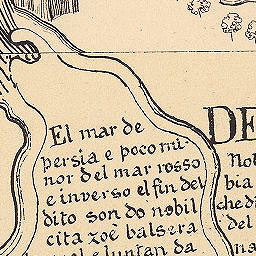 El mar de
persia e poco mi-
nor del mar rosso
e inverso el fin del
dito son do nobil
cita zoè balsera
DE
Not
bia
che di
del